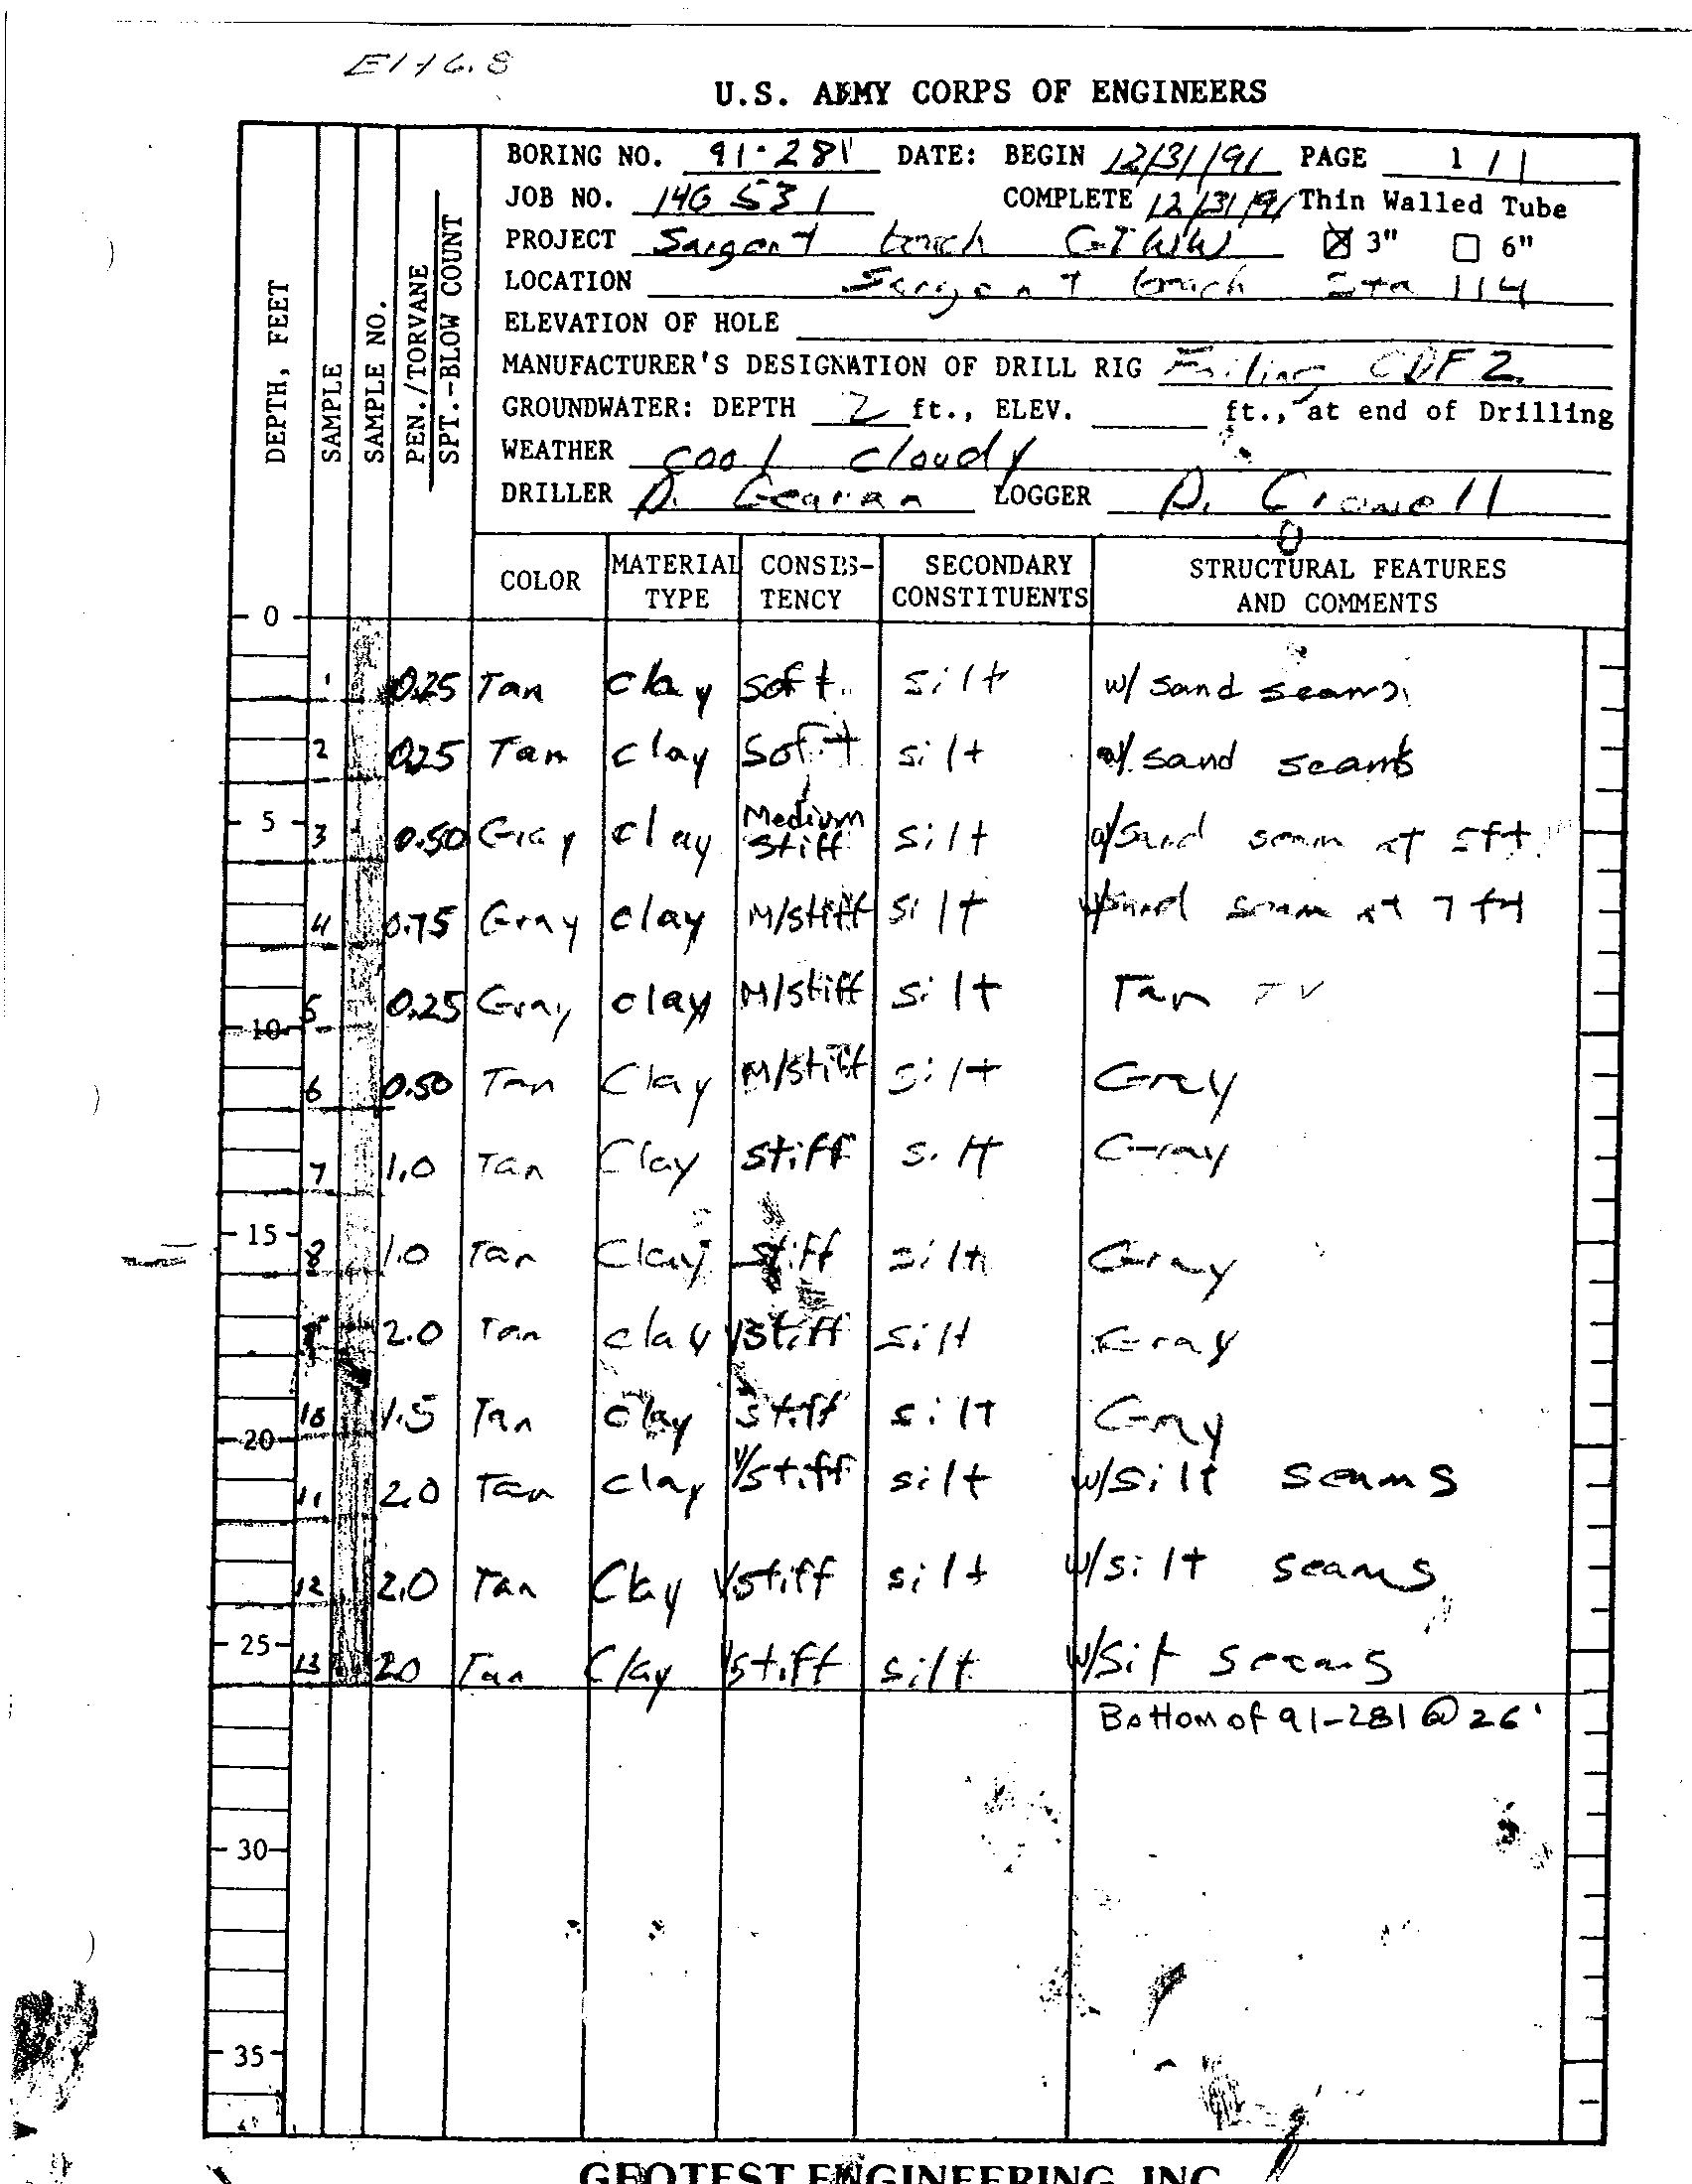 El 16.8
U.S. ARMY CORPS OF ENGINEERS
BORING NO. 91-281 DATE: BEGIN 12/31/91 PAGE 1 / 1
JOB NO. 14G 531 COMPLETE 12/31/91 Thin Walled Tube
PROJECT Sargent beach GIWW ☒ 3" ☐ 6"
LOCATION Sargent beach Sta 114
ELEVATION OF HOLE
MANUFACTURER'S DESIGNATION OF DRILL RIG Failing CDF 2
GROUNDWATER: DEPTH 2 ft., ELEV. ft., at end of Drilling
WEATHER cool cloudy
DRILLER D. LOGGER D. Crowell
DEPTH, FEET
SAMPLE
SAMPLE NO.
PEN./TORVANE
SPT.-BLOW COUNT
COLOR MATERIAL TYPE CONSIS-TENCY SECONDARY CONSTITUENTS STRUCTURAL FEATURES AND COMMENTS
0
1 0.25 Tan clay soft silt w/ sand seams
2 0.25 Tan clay Soft silt w/ sand seams
5 3 0.50 Gray clay Medium Stiff silt w/ sand seam at 5ft
4 0.75 Gray clay M/stiff silt w/ sand seam at 7 ft
5 0.25 Gray clay M/stiff silt Tan TV
10
6 0.50 Tan Clay M/stiff silt Gray
7 1.0 Tan Clay stiff silt Gray
15
8 1.0 Tan Clay stiff silt Gray
9 2.0 Tan clay V/stiff silt Gray
10 1.5 Tan clay stiff silt Gray
20
11 2.0 Tan clay V/stiff silt w/silt seams
12 2.0 Tan Clay V/stiff silt w/silt seams
25
13 2.0 Tan Clay V/stiff silt w/silt seams
Bottom of 91-281 @ 26'
30
35
GEOTEST ENGINEERING, INC.